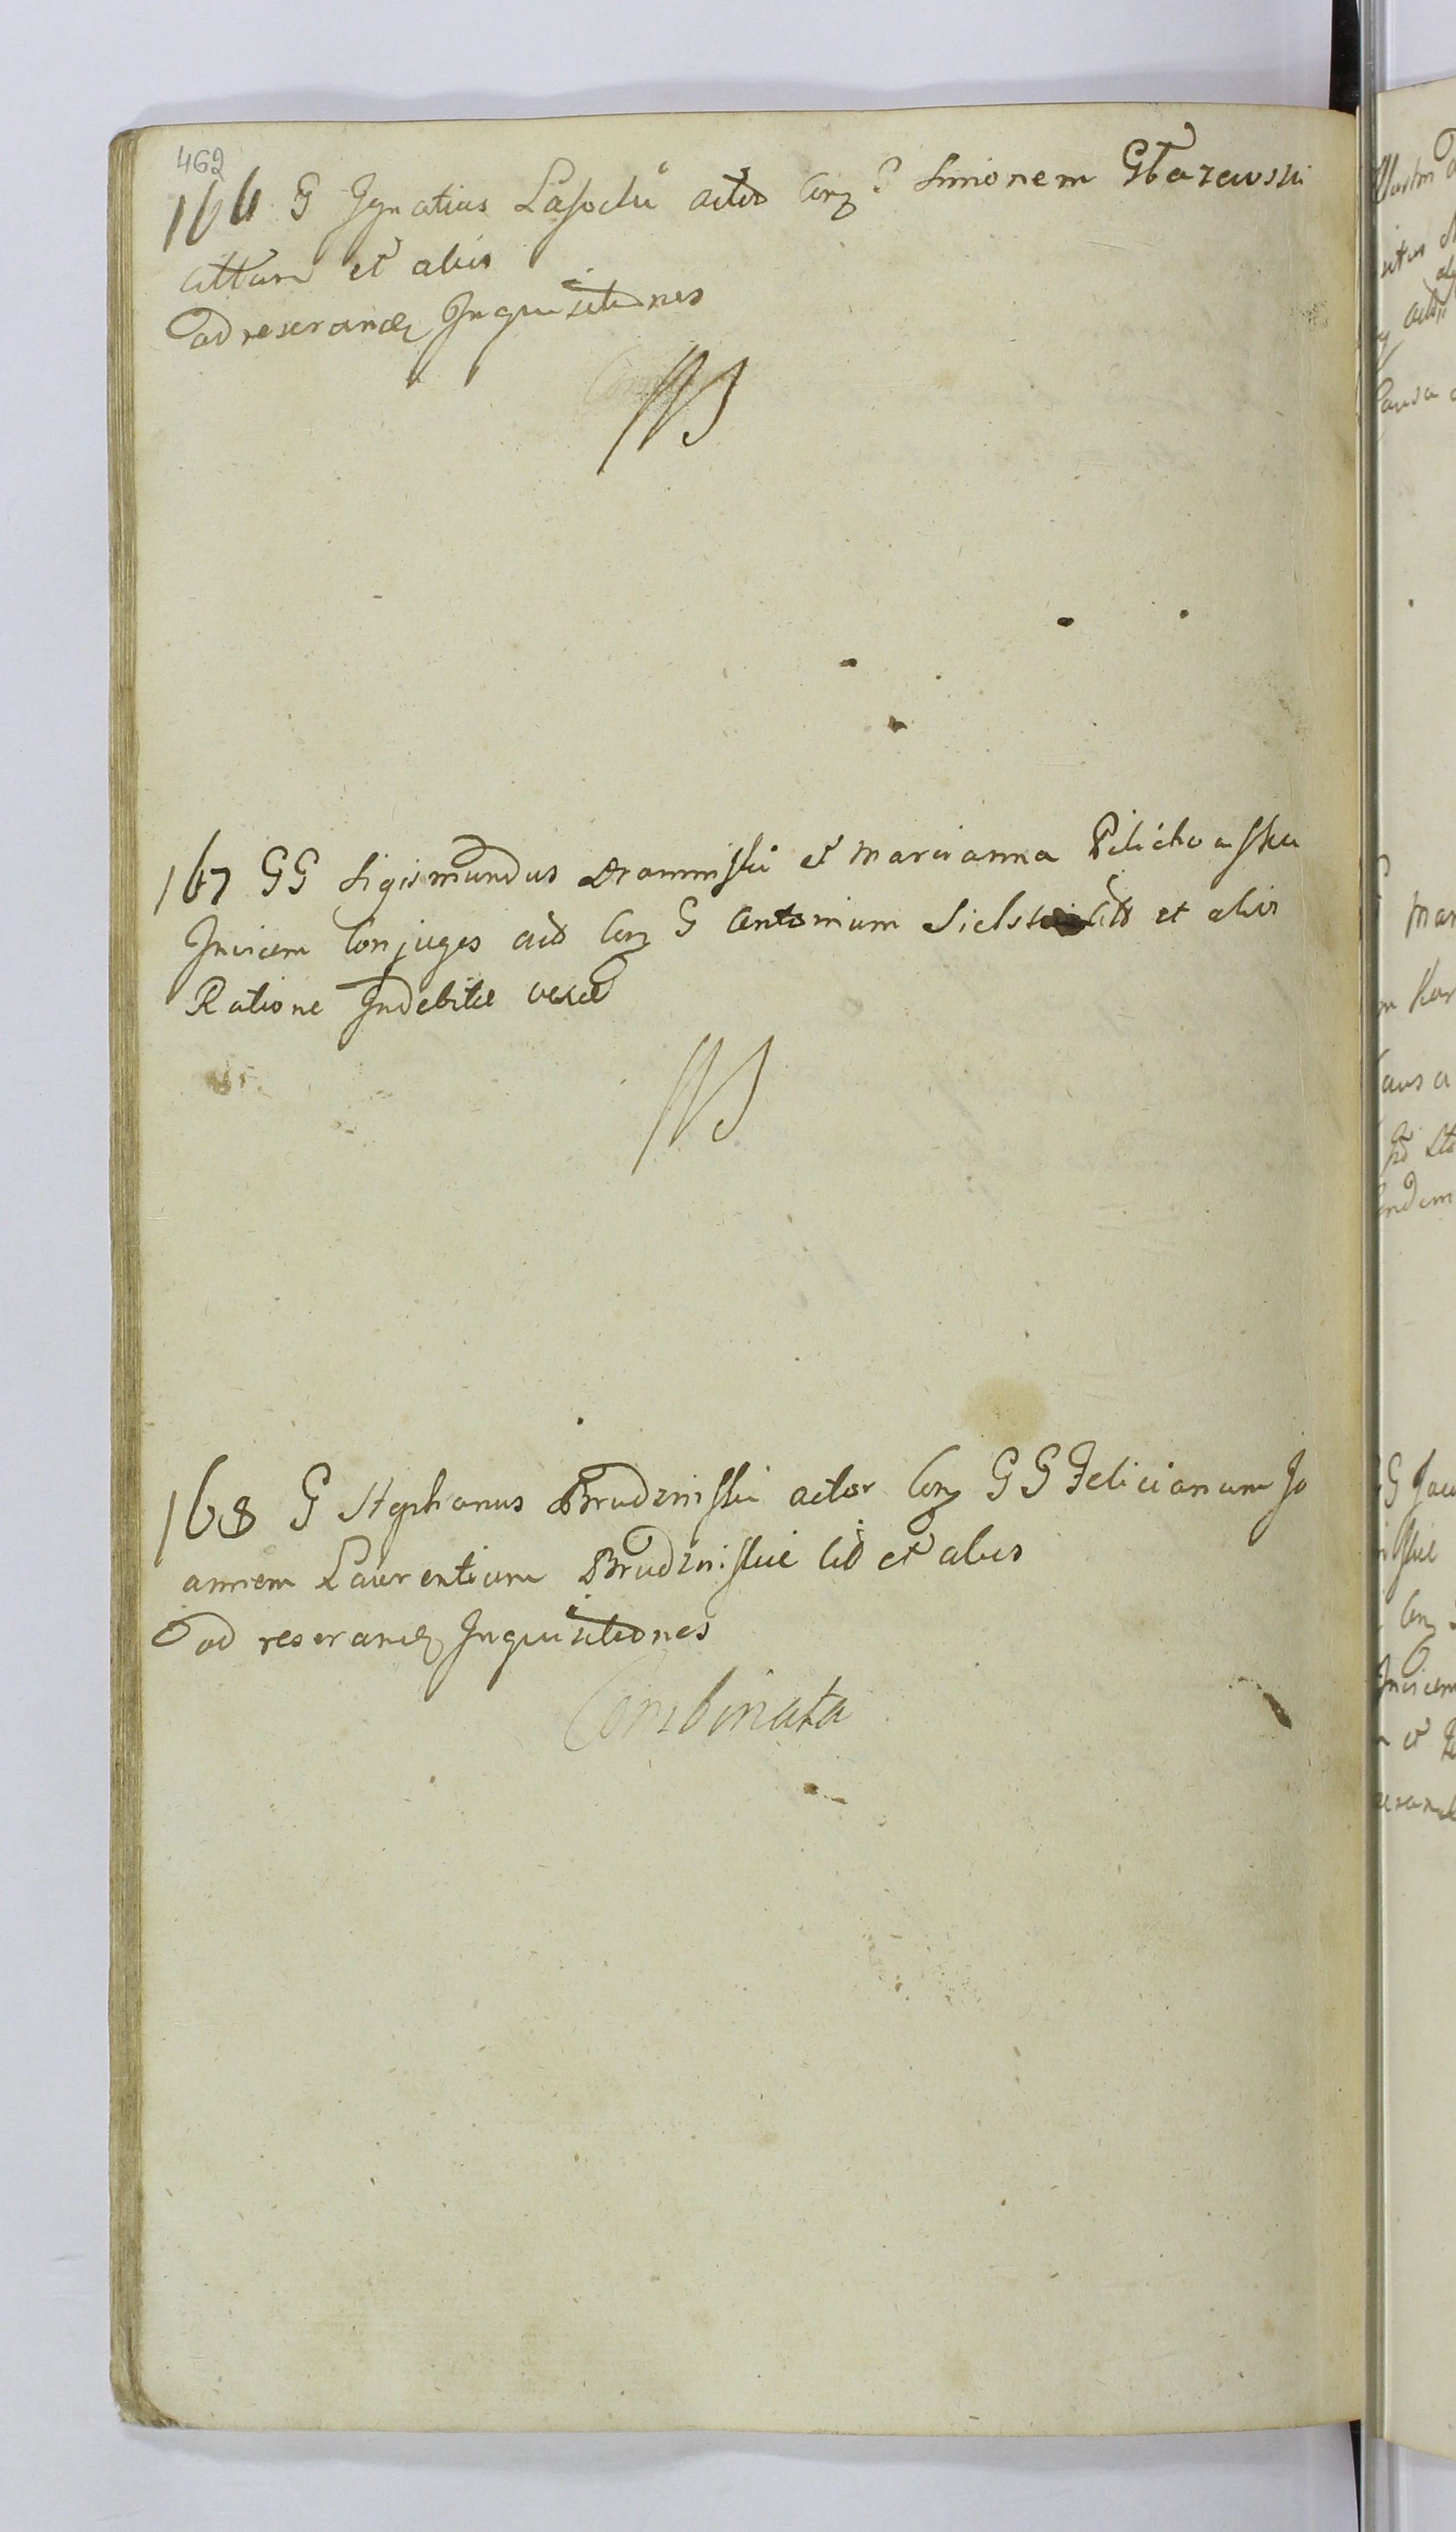 462
166 G Ignatius Lasocki actor Con G Simonem Głazewski
Cittum et alios
Ad reserand Inquisitiones
167 GG Sigismundus Dramiński et Marianna Pilichowska
Invicem Conjuges act Con G Antonium Sielski Citt et alios
Ratione Indebitæ vexæ
168 G Stephanus Brudzinski actor Con GG Felicianum Jo
annem Laurentium Brudzinskie Cit et alios
Ad reserand Inquisitiones
Combinata